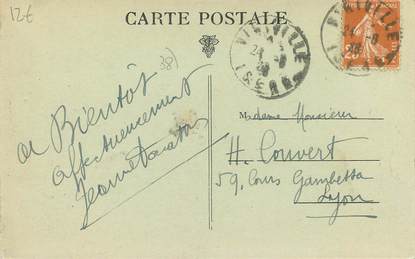 12€
CARTE POSTALE
VIRIVILLE
ISÈRE
38)
a Bientôt
affectueusement
Madame Monsieur
H. Couvert
59, Cours Gambetta
Lyon